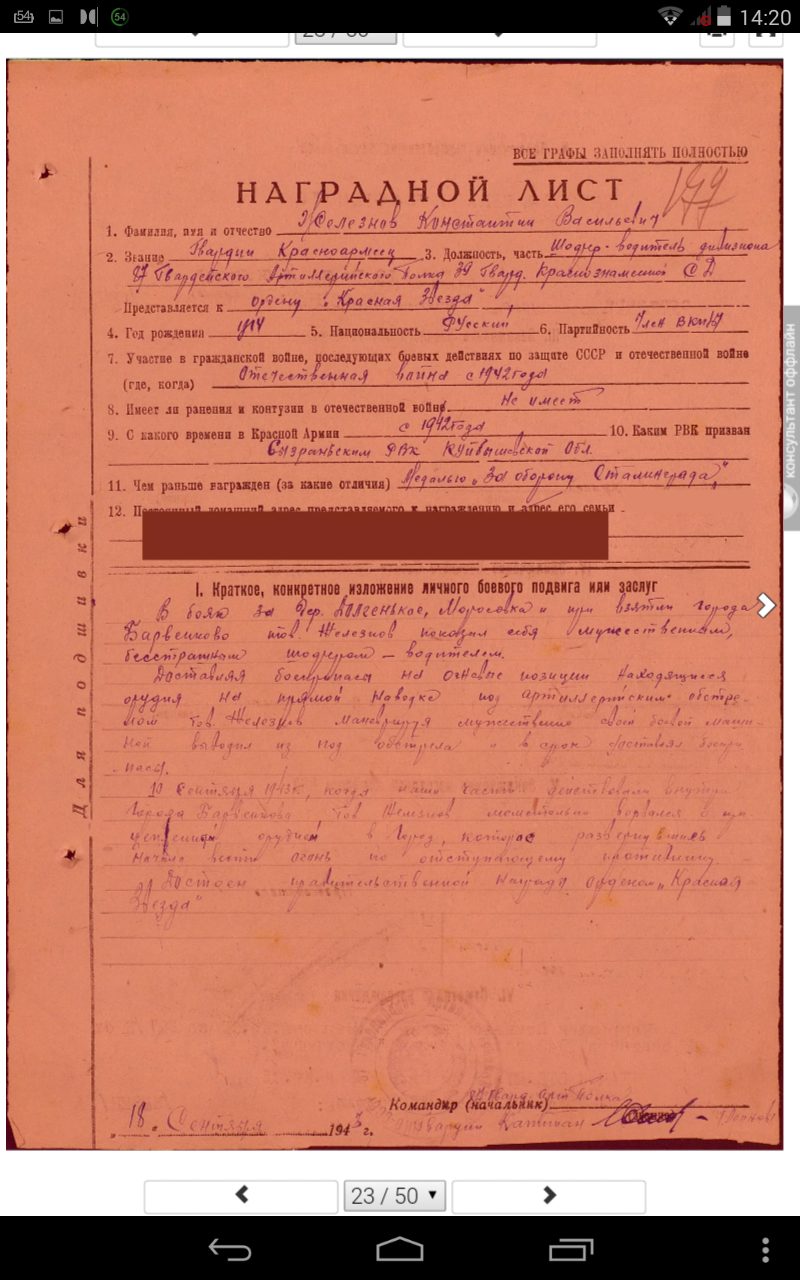 54
54
14:20
ВСЕ ГРАФЫ ЗАПОЛНЯТЬ ПОЛНОСТЬЮ
НАГРАДНОЙ ЛИСТ
1. Фамилия, имя и отчество Железнов Константин Васильевич
2. Звание Гвардии Красноармеец 3. Должность, часть Шофер-водитель дивизиона
87 Гвардейского Артиллерийского Полка 39 Гвард. Краснознаменной СД
Представляется к ордену „Красная Звезда"
4. Год рождения 5. Национальность Русский 6. Партийность Член ВКП/б
7. Участие в гражданской войне, последующих боевых действиях по защите СССР и отечественной войне
(где, когда) Отечественная война с 1942 года
8. Имеет ли ранения и контузии в отечественной войне Не имеет
9. С какого времени в Красной Армии с 1942 года 10. Каким РВК призван
Сызраньским РВК Куйбышевской Обл.
11. Чем раньше награжден (за какие отличия) Медалью „За оборону Сталинграда"
12. Постоянный домашний адрес представляемого к награждению и адрес его семьи
I. Краткое, конкретное изложение личного боевого подвига или заслуг
В боях за Дер. Долгенькое, Моросовка и при взятии города
Барвенково тов. Железнов показал себя мужественным,
бесстрашным шофером – водителем.
Доставляя боеприпасы на огневые позиции находящиеся
орудия на прямой наводке под артиллерийским обстре-
лом тов. Железнов маневрируя мужественно своей боевой маши-
ной выводил из под обстрела и в срок доставлял боепри-
пасы.
10 Сентября 1943г., когда наши части действовали внутри
Города Барвенкова тов Железнов ворвался с при-
цепленным орудием в город, которое развернувшись
начало вести огонь по отступающему противнику
Достоен правительственной награды орденом „Красная
Звезда"
Для подшивки
Командир (начальник) Гвард. Арт Полка
„18" Сентября 1943 г. Гвардии Капитан
23 / 50
консультант оффлайн